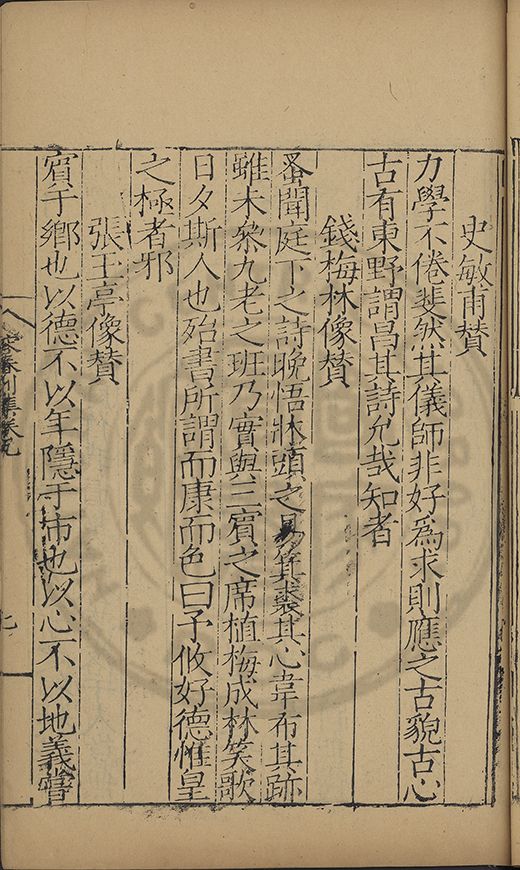 史敏甫贊
力學不倦斐然其儀師非好爲求則應之古貌古心
古有東野謂昌其詩允哉知者
錢梅林像贊
蚤聞庭下之詩晚悟牀頭之易箕裘其心韋布其跡
雖未叅九老之班乃實與三賓之席植梅成林笑歌
日夕斯人也殆書所謂而康而色曰予攸好德惟皇
之極者邪
張玉亭像贊
賓于鄉也以德不以年隱于市也以心不以地義嘗